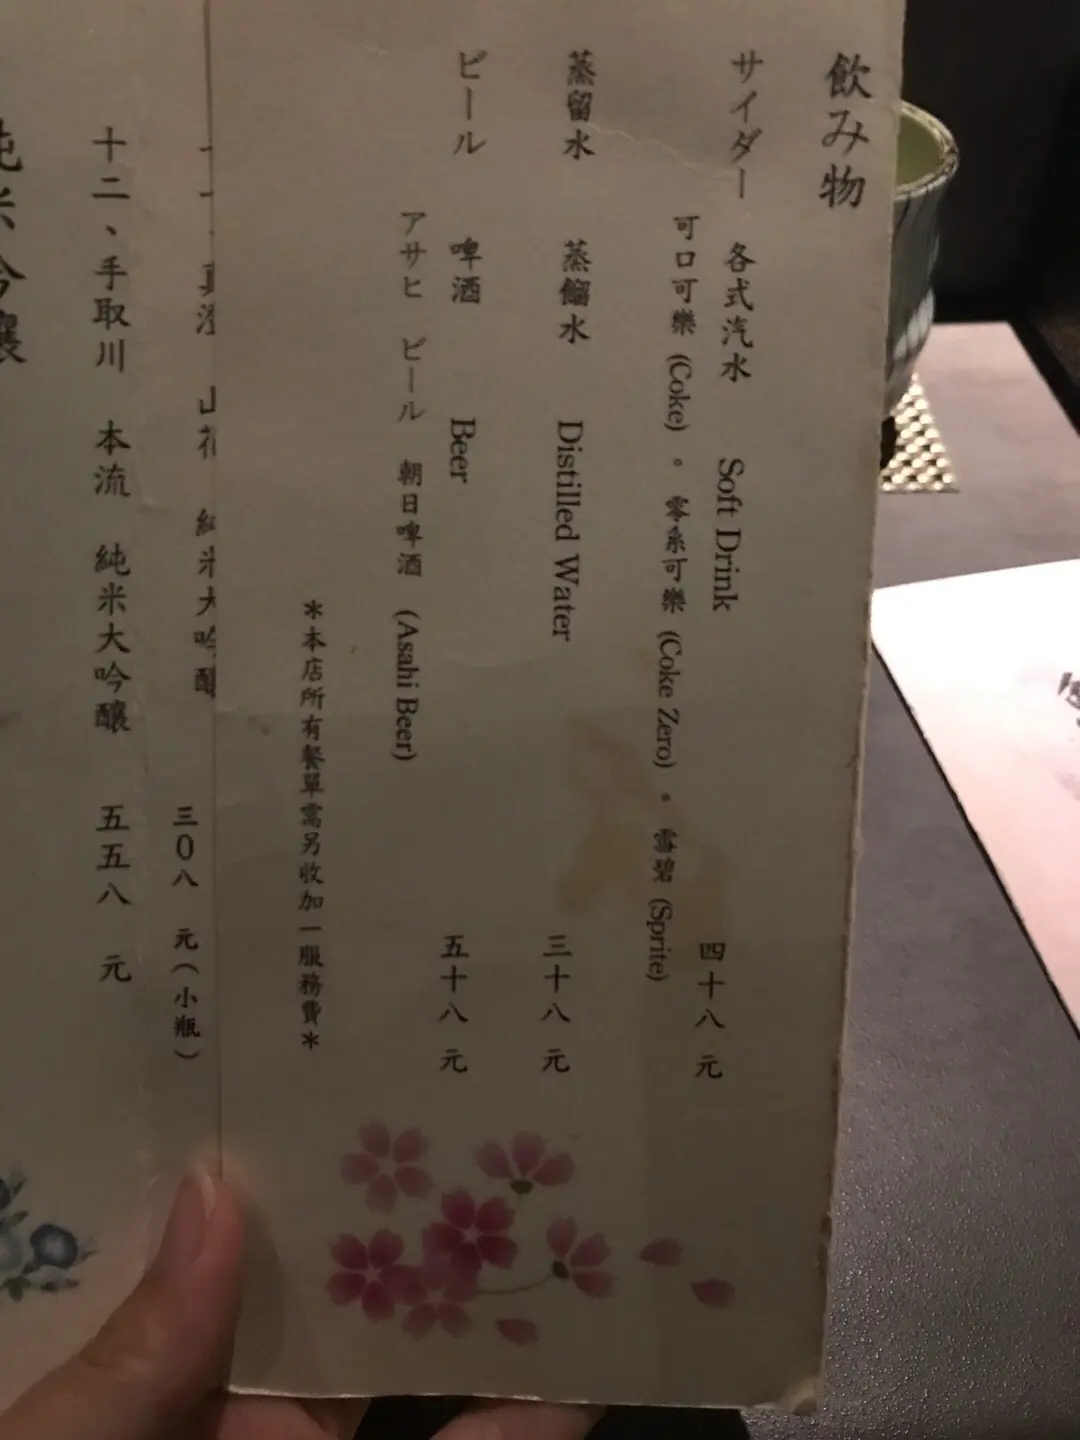 飲み物
サイダー 各式汽水 Soft Drink 四十八 元
可口可樂 (Coke) 。 零系可樂 (Coke Zero) 。 雪碧 (Sprite)
蒸留水 蒸餾水 Distilled Water 三十八 元
ビール 啤酒 Beer 五十八 元
アサヒ ビール 朝日啤酒 (Asahi Beer)
*本店所有餐單需另收加一服務費*
真澄 山花 純米大吟釀
三0八 元（小瓶）
十二、手取川 本流 純米大吟釀 五五八 元
純米吟釀